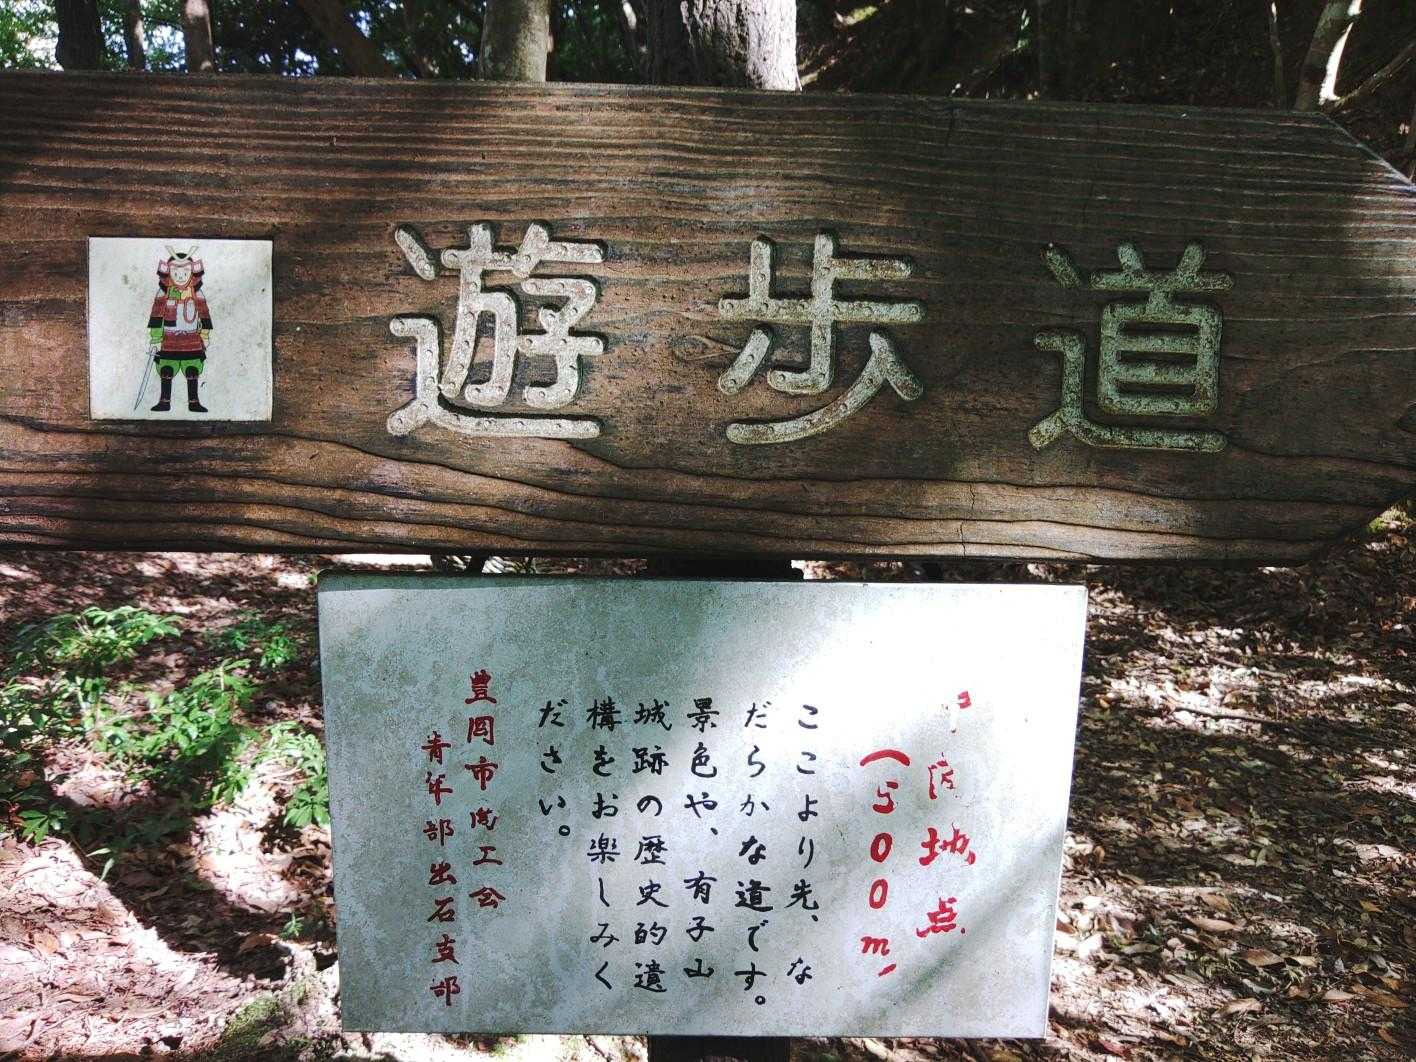 遊歩道
中間地点
(500m)
ここより先、な
だらかな道です。
景色や、有子山
城跡の歴史的遺
構をお楽しみく
ださい。
豊岡市商工会
青年部出石支部